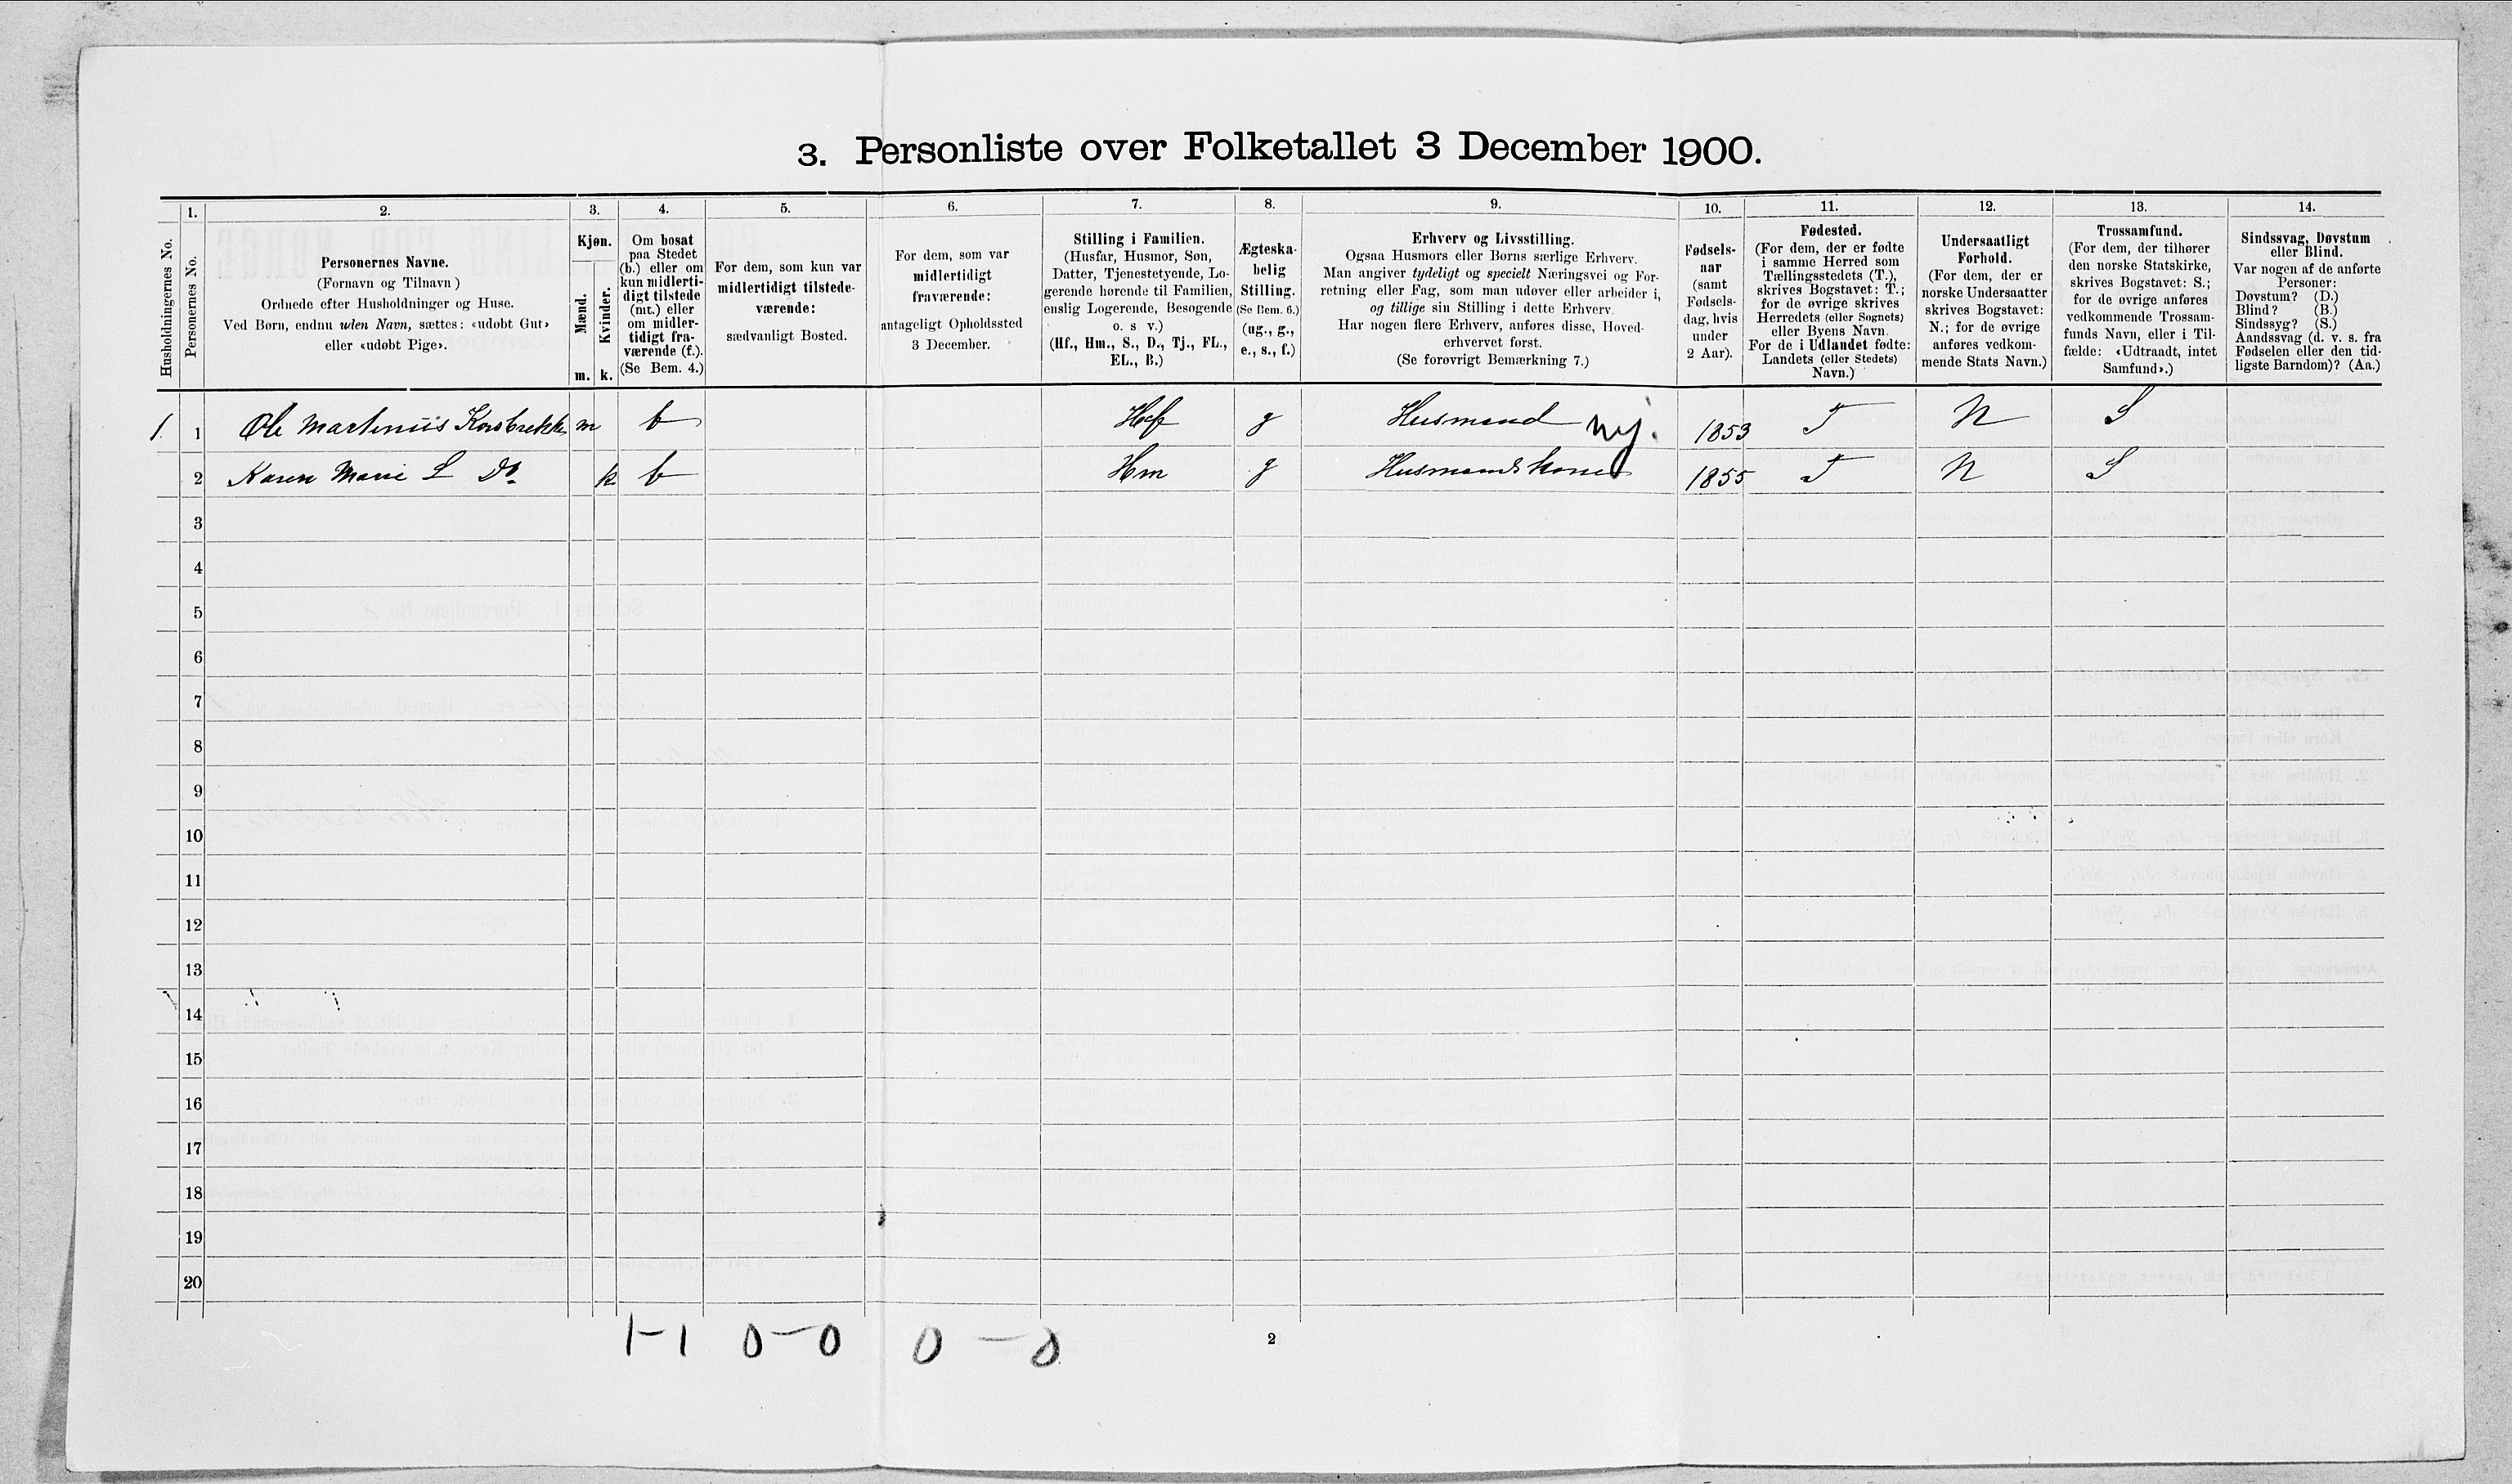 3. Personliste over Folketallet 3 December 1900.
Husholdningernes No.
1.
Personernes No.
2.
Personernes Navne.
(Fornavn og Tilnavn)
Ordnede efter Husholdninger og Huse.
Ved Børn, endnu uden Navn, sættes: «udøbt Gut»
eller «udøbt Pige».
3.
Kjøn.
Mænd.
Kvinder.
m. k.
4.
Om bosat
paa Stedet
(b.) eller om
kun midlerti-
digt tilstede
(mt.) eller
om midler-
tidigt fra-
værende (f.).
(Se Bem. 4.)
5.
For dem, som kun var
midlertidigt tilstede-
værende:
sædvanligt Bosted.
6.
For dem, som var
midlertidigt
fraværende:
antageligt Opholdssted
3 December.
7.
Stilling i Familien.
(Husfar, Husmor, Søn,
Datter, Tjenestetyende, Lo-
gerende hørende til Familien,
enslig Logerende, Besøgende
o. s v.)
(Hf., Hm., S., D., Tj., FL.,
EL., B.)
8.
Ægteska-
belig
Stilling.
(Se Bem. 6.)
(ug., g.,
e., s., f.)
9.
Erhverv og Livsstilling.
Ogsaa Husmors eller Børns særlige Erhverv.
Man angiver tydeligt og specielt Næringsvei og For-
retning eller Fag, som man udøver eller arbeider i,
og tillige sin Stilling i dette Erhverv.
Har nogen flere Erhverv, anføres disse, Hoved-
erhvervet først.
(Se forøvrigt Bemærkning 7.)
10.
Fødsels-
aar
(samt
Fødsels-
dag, hvis
under
2 Aar).
11.
Fødested.
(For dem, der er fødte
i samme Herred som
Tællingsstedets (T.),
skrives Bogstavet: T.;
for de øvrige skrives
Herredets (eller Sognets)
eller Byens Navn.
For de i Udlandet fødte:
Landets (eller Stedets)
Navn.)
12.
Undersaatligt
Forhold.
(For dem, der er
norske Undersaatter
skrives Bogstavet:
N.; for de øvrige
anføres vedkom-
mende Stats Navn.)
13.
Trossamfund.
(For dem, der tilhører
den norske Statskirke,
skrives Bogstavet: S.;
for de øvrige anføres
vedkommende Trossam-
funds Navn, eller i Til-
fælde: «Udtraadt, intet
Samfund».)
14.
Sindssvag, Døvstum
eller Blind.
Var nogen af de anførte
Personer:
Døvstum? (D.)
Blind? (B.)
Sindssyg? (S.)
Aandssvag (d. v. s. fra
Fødselen eller den tid-
ligste Barndom)? (Aa.)
1. 1 Ole Martinius Korsbrekke m b Hf g Husmand 1853 T N S
2 Karen Marie L Do k b Hm g Husmandskone 1855 T N S
3
4
5
6
7
8
9
10
11
12
13
14
15
16
17
18
19
20
1-1 0-0 0-0
2